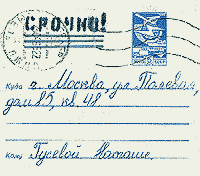 СРОЧНО!
Куда г. Москва, ул. Полевая,
дом 85, кв. 48
Кому Гусевой Наташе